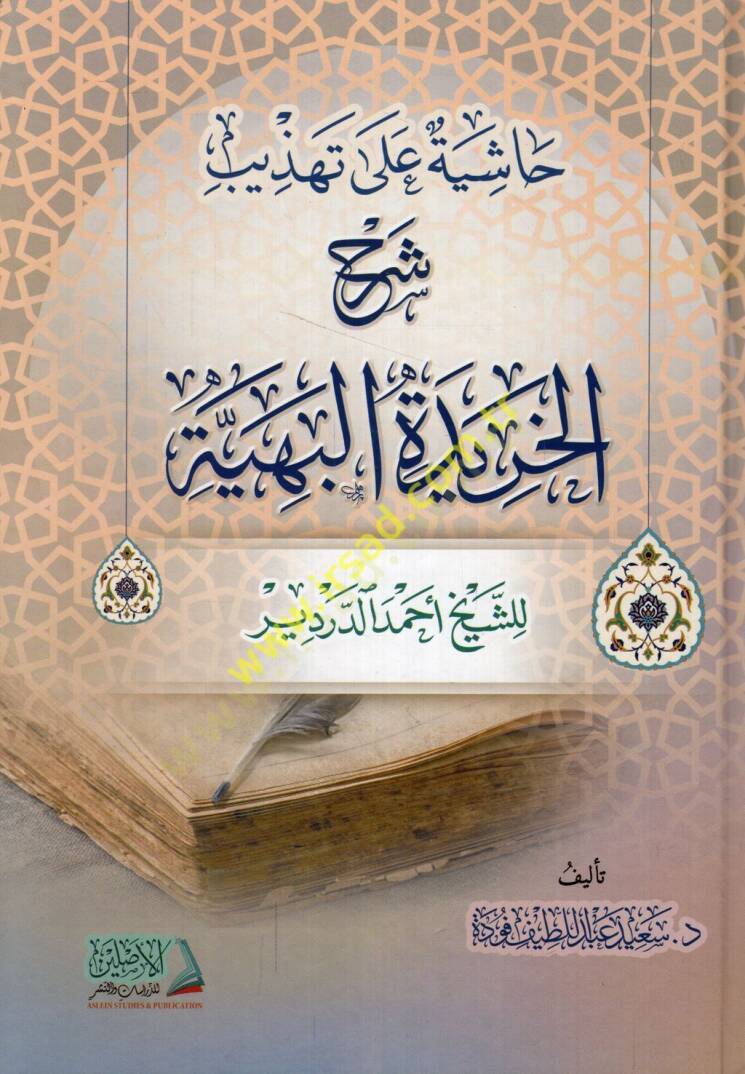 حَاشِيَةٌ عَلَى تَهْذِيبِ
شَرْحِ
الخَرِيدَةِ البَهِيَّةِ
لِلشَّيْخِ أَحْمَدَ الدَّرْدِيرِ
www.irsad.com.tr
تأليفُ
د. سَعِيد عَبْداللَّطِيف فُودَة
الأصلين
للدراسات والنشر
ASLEIN STUDIES & PUBLICATION